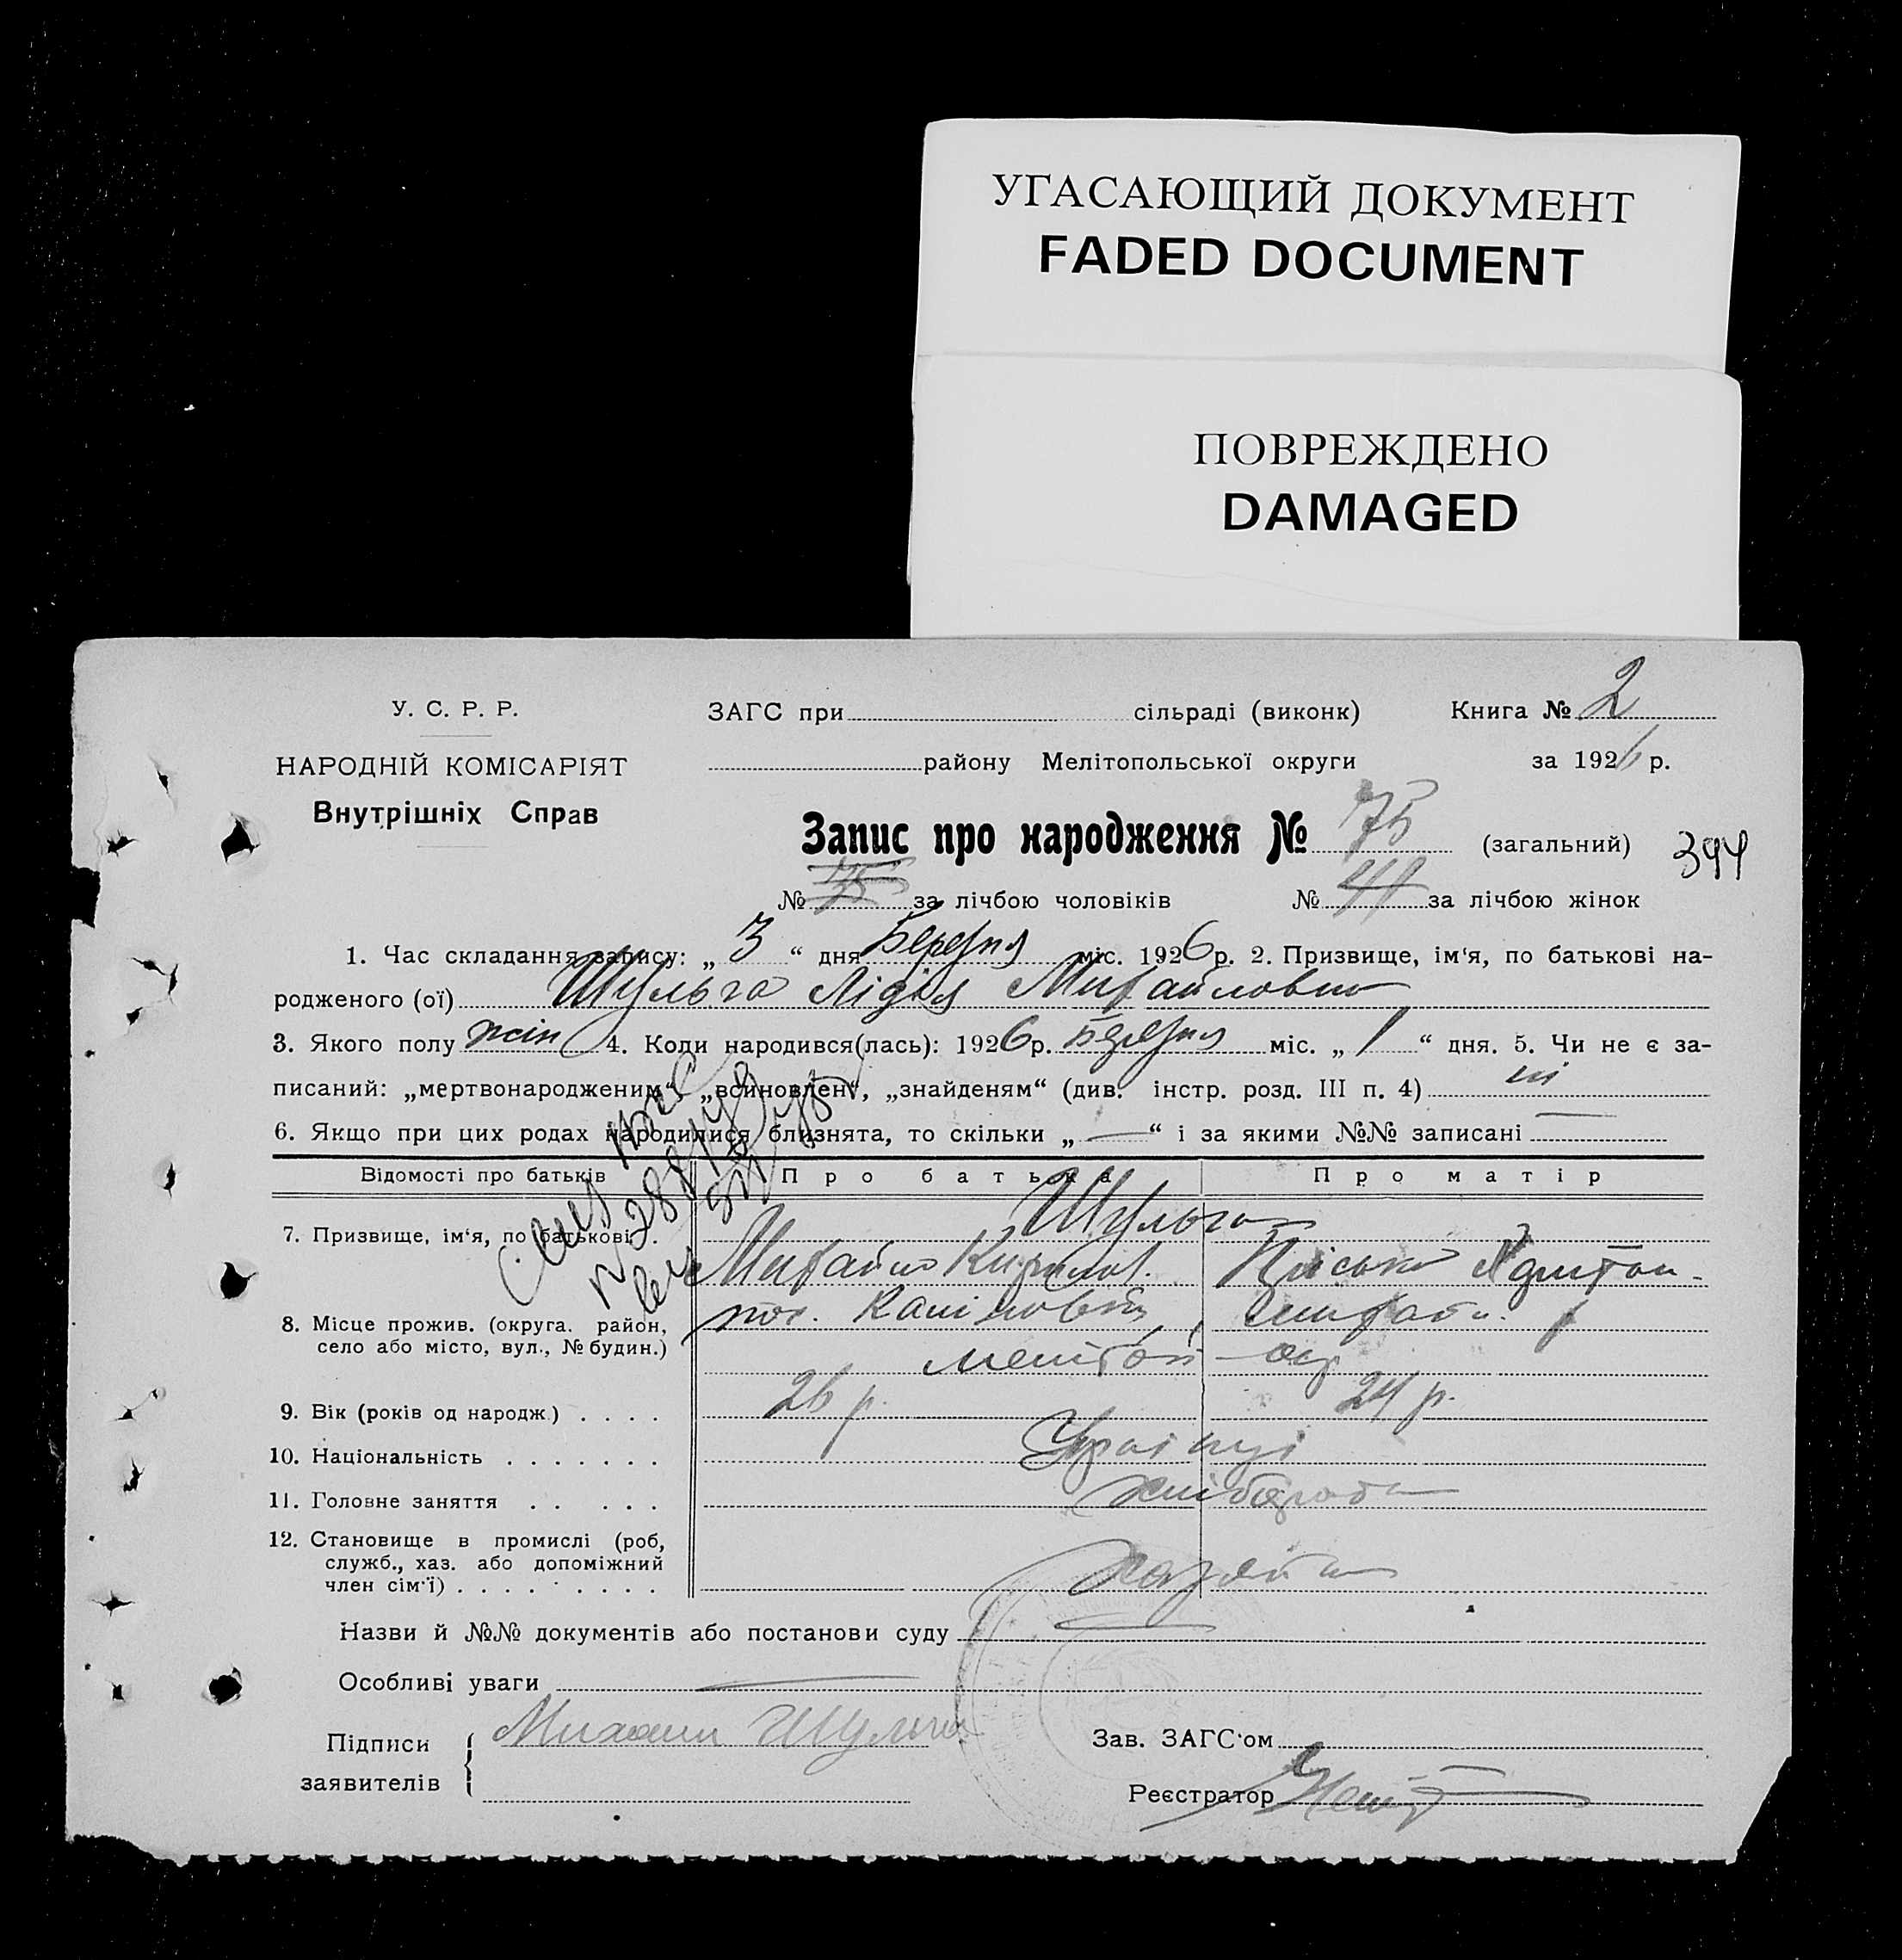 УГАСАЮЩИЙ ДОКУМЕНТ
FADED DOCUMENT
ПОВРЕЖДЕНО
DAMAGED
У. С. Р. Р.
НАРОДНІЙ КОМІСАРІЯТ
Внутрішніх Справ
ЗАГС при сільраді (виконк) Книга № 2
району Мелітопольської округи за 1926 р.
Запис про народження № 75 (загальний) 394
№ 35 за лічбою чоловіків № 41 за лічбою жінок
1. Час складання запису: „ 3 “ дня Березня міс. 1926 р. 2. Призвище, ім‘я, по батькові на-
родженого (ої) Шульга Лідія Михайловна
3. Якого полу жін 4. Коли народився(лась): 1926 р. Березня міс. „ 1 “ дня. 5. Чи не є за-
писаний: „мертвонародженим“ „всиновлен“, „знайденям“ (див. інстр. розд. III п. 4) ні
6. Якщо при цих родах народилися близнята, то скільки „ — “ і за якими №№ записані —
Відомості про батьків Про батька Про матір
Шульга
7. Призвище, ім‘я, по батькові .
Михайло
8. Місце прожив. (округа. район,
село або місто, вул., № будин.)
9. Вік (років од народж) . . . . 26 р. 24 р.
10. Національність . . . . . . . Українці
11. Головне заняття . . . . . хліборобі
12. Становище в промислі (роб,
служб., хаз. або допоміжний
член сім‘ї) . . . . . . . . . .
Назви й №№ документів або постанови суду —
Особливі уваги —
Підписи Михаил Шульга
заявителів
Зав. ЗАГС‘ом
Реєстратор